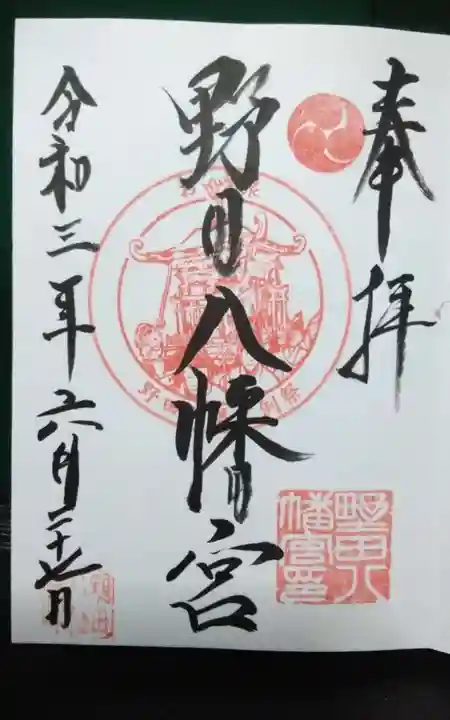 奉拝
野田八幡宮
令和三年六月二十七日
野田八幡宮印
例祭